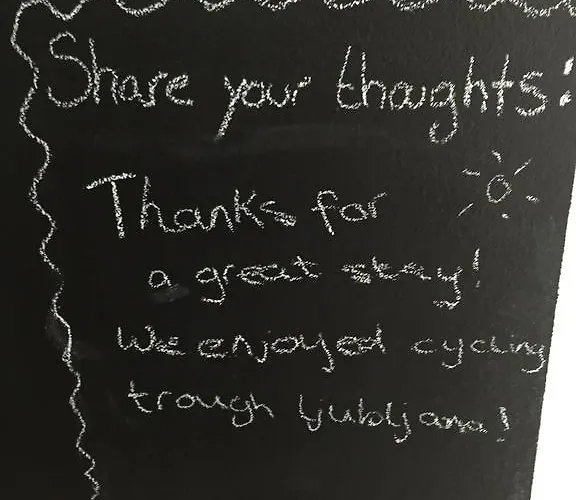 Share your thoughts:
Thanks for
a great stay!
We enjoyed cycling
trough ljubljana!